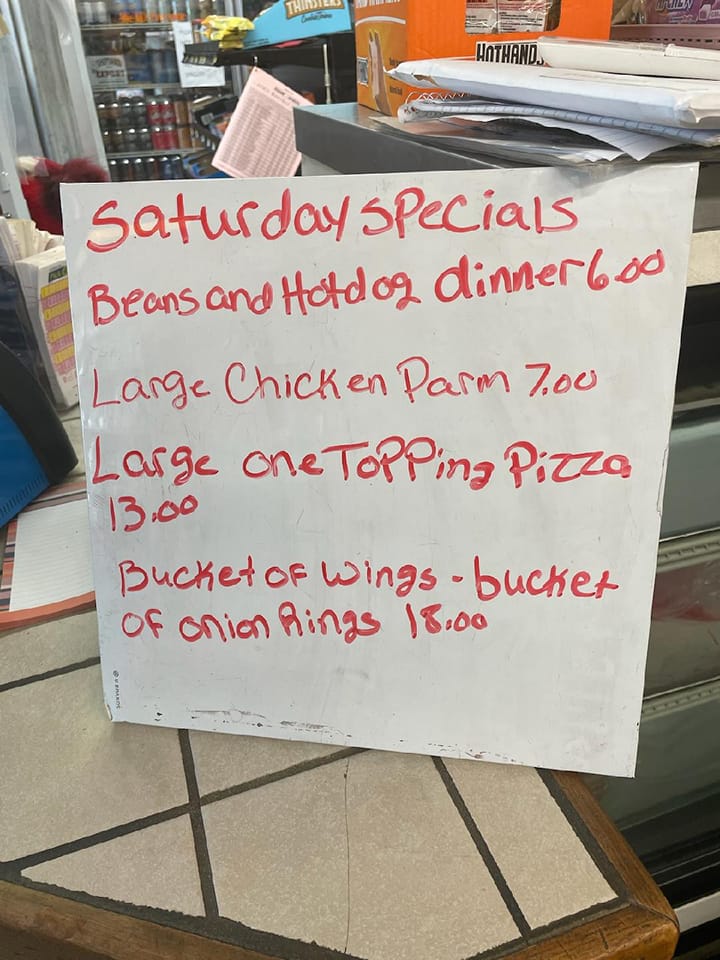 THINSTERS
Cookie Thins
HOTHANDS
Saturday specials
Beans and Hotdog dinner 6.00
Large Chicken Parm 7.00
Large one Topping Pizza
13.00
Bucket of Wings - bucket
of onion Rings 18.00